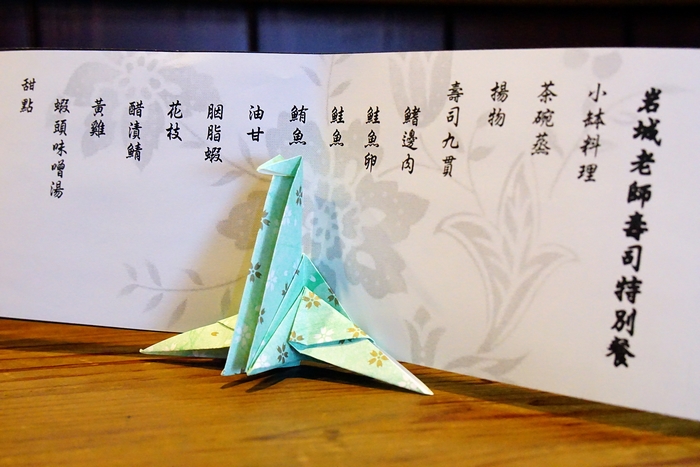 岩城老師壽司特別餐
小鉢料理
茶碗蒸
揚物
壽司九貫
鰭邊肉
鮭魚卵
鮭魚
鮪魚
油甘
胭脂蝦
花枝
醋漬鯖
黃雞
蝦頭味噌湯
甜點